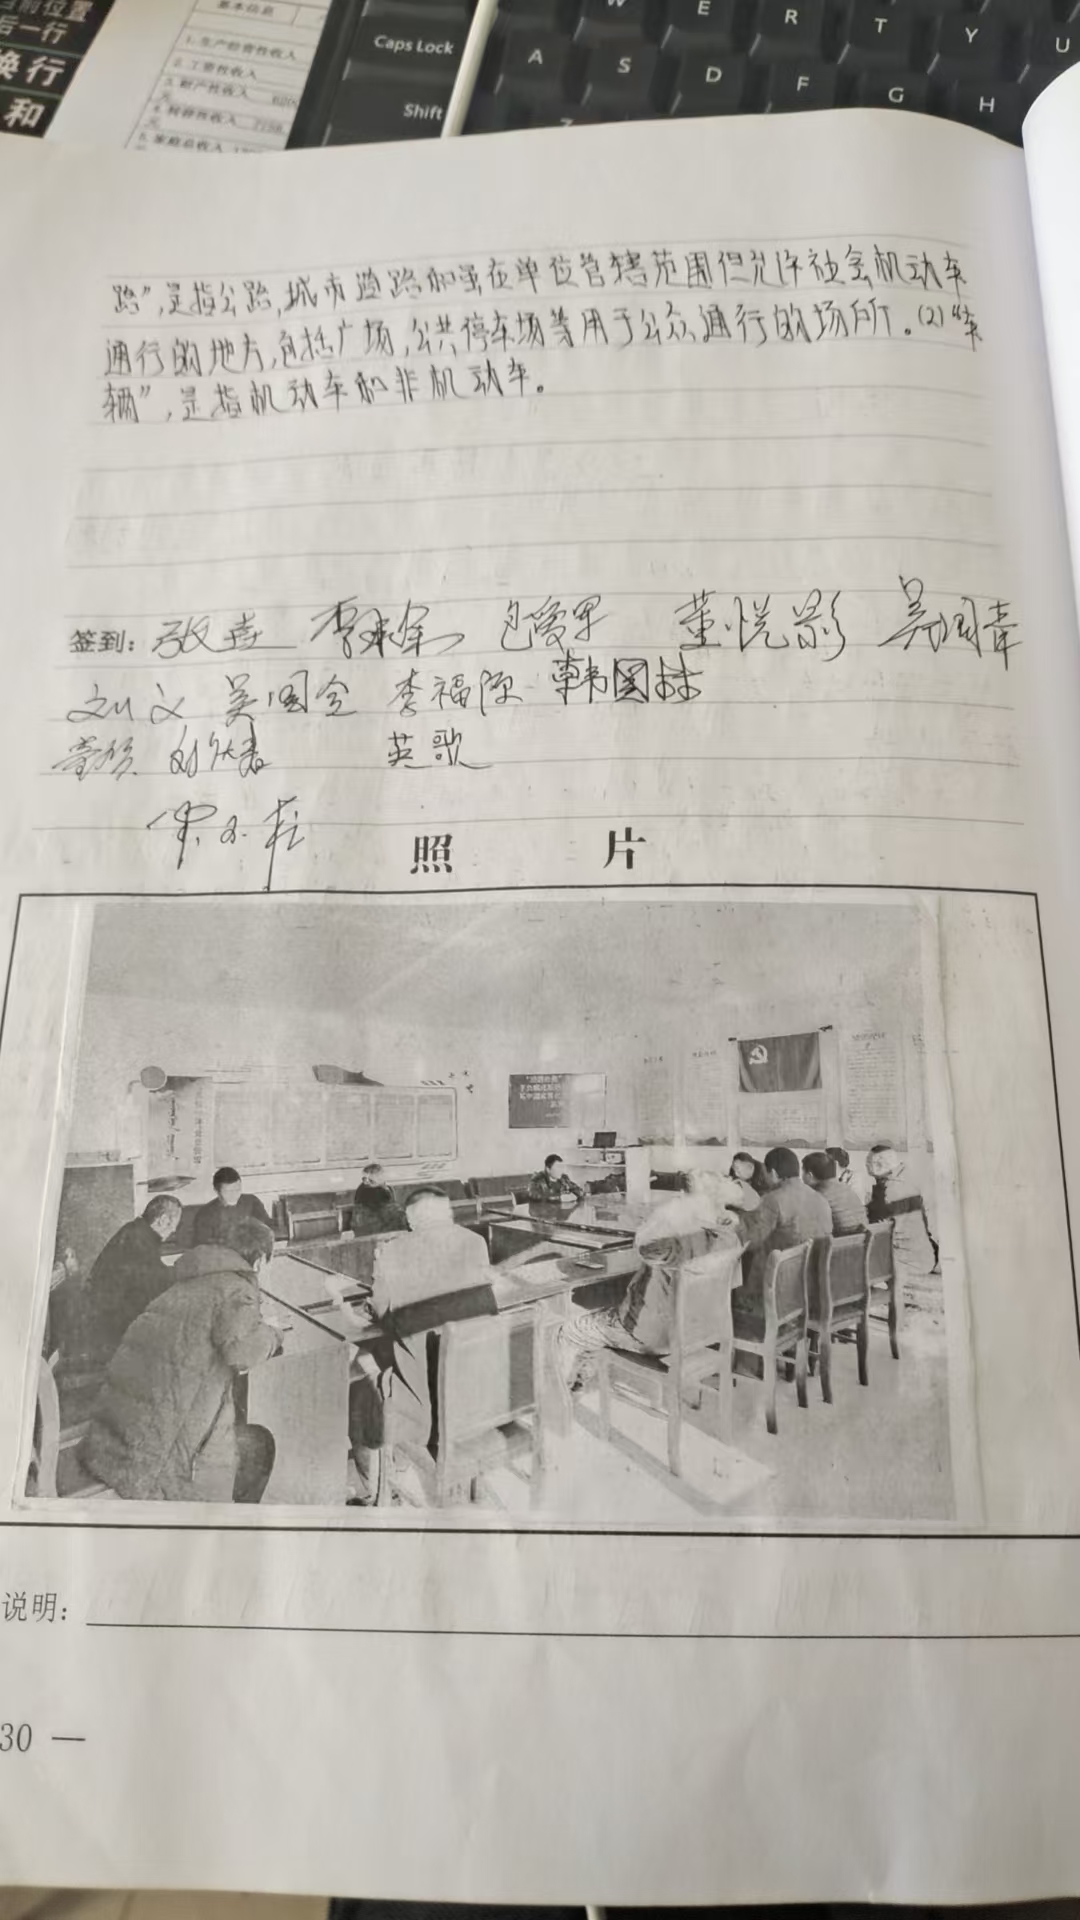 当前位置
后一行
换行
和
基本信息
1.生产经营性收入
2.工资性收入
3.财产性收入
4.转移性收入
5.家庭总收入
Caps Lock
Shift
W E R T Y U
A S D F G H
Z
路”,是指公路,城市道路和虽在单位管辖范围但允许社会机动车
通行的地方,包括广场,公共停车场等用于公众通行的场所。(2)“车
辆”,是指机动车和非机动车。
签到:张喜 包爱军 董悦影
刘文 吴国全 李福原 韩国林
英歌
照 片
说明:
30 —